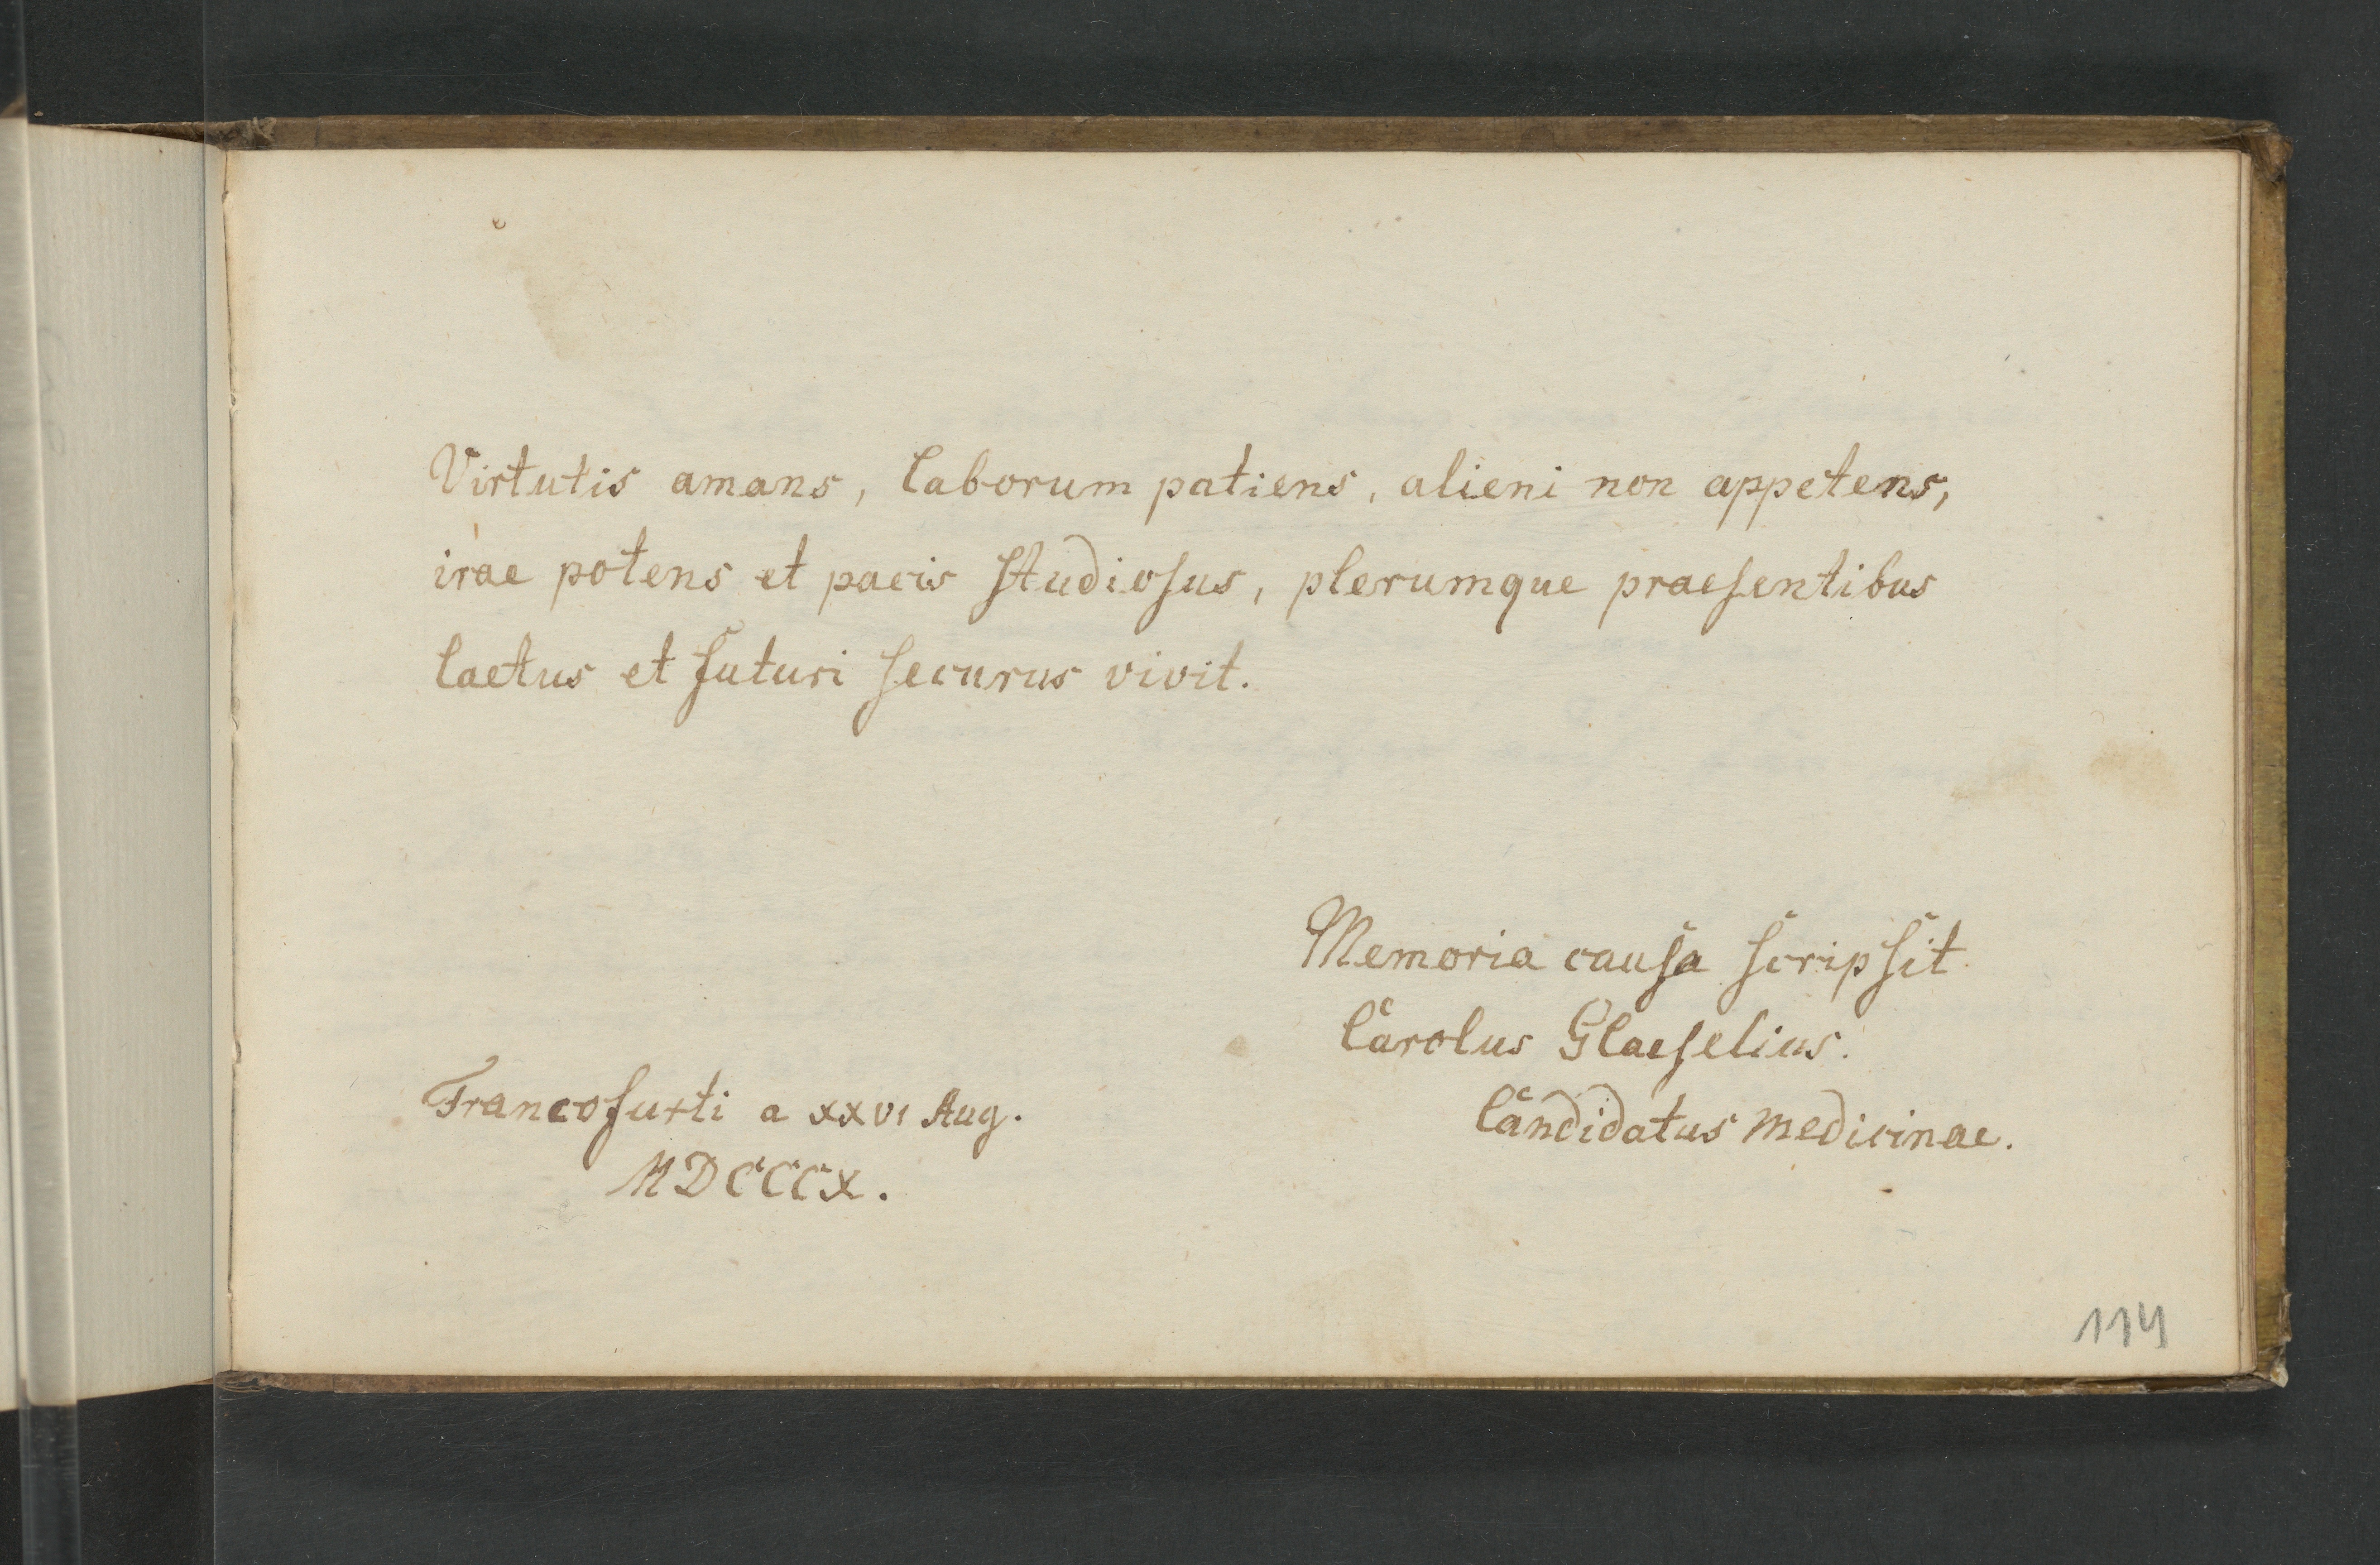 Virtutis amans, laborum patiens, alieni non appetens,
irae potens et pacis ſtudioſus, plerumque praeſentibus
laetus et futuri ſecurus vivit.
Memoria cauſa ſcripſit
Carolus Glaeſelius.
Candidatus medicinae.
Francofurti a XXVI Aug.
MDCCCX.
114